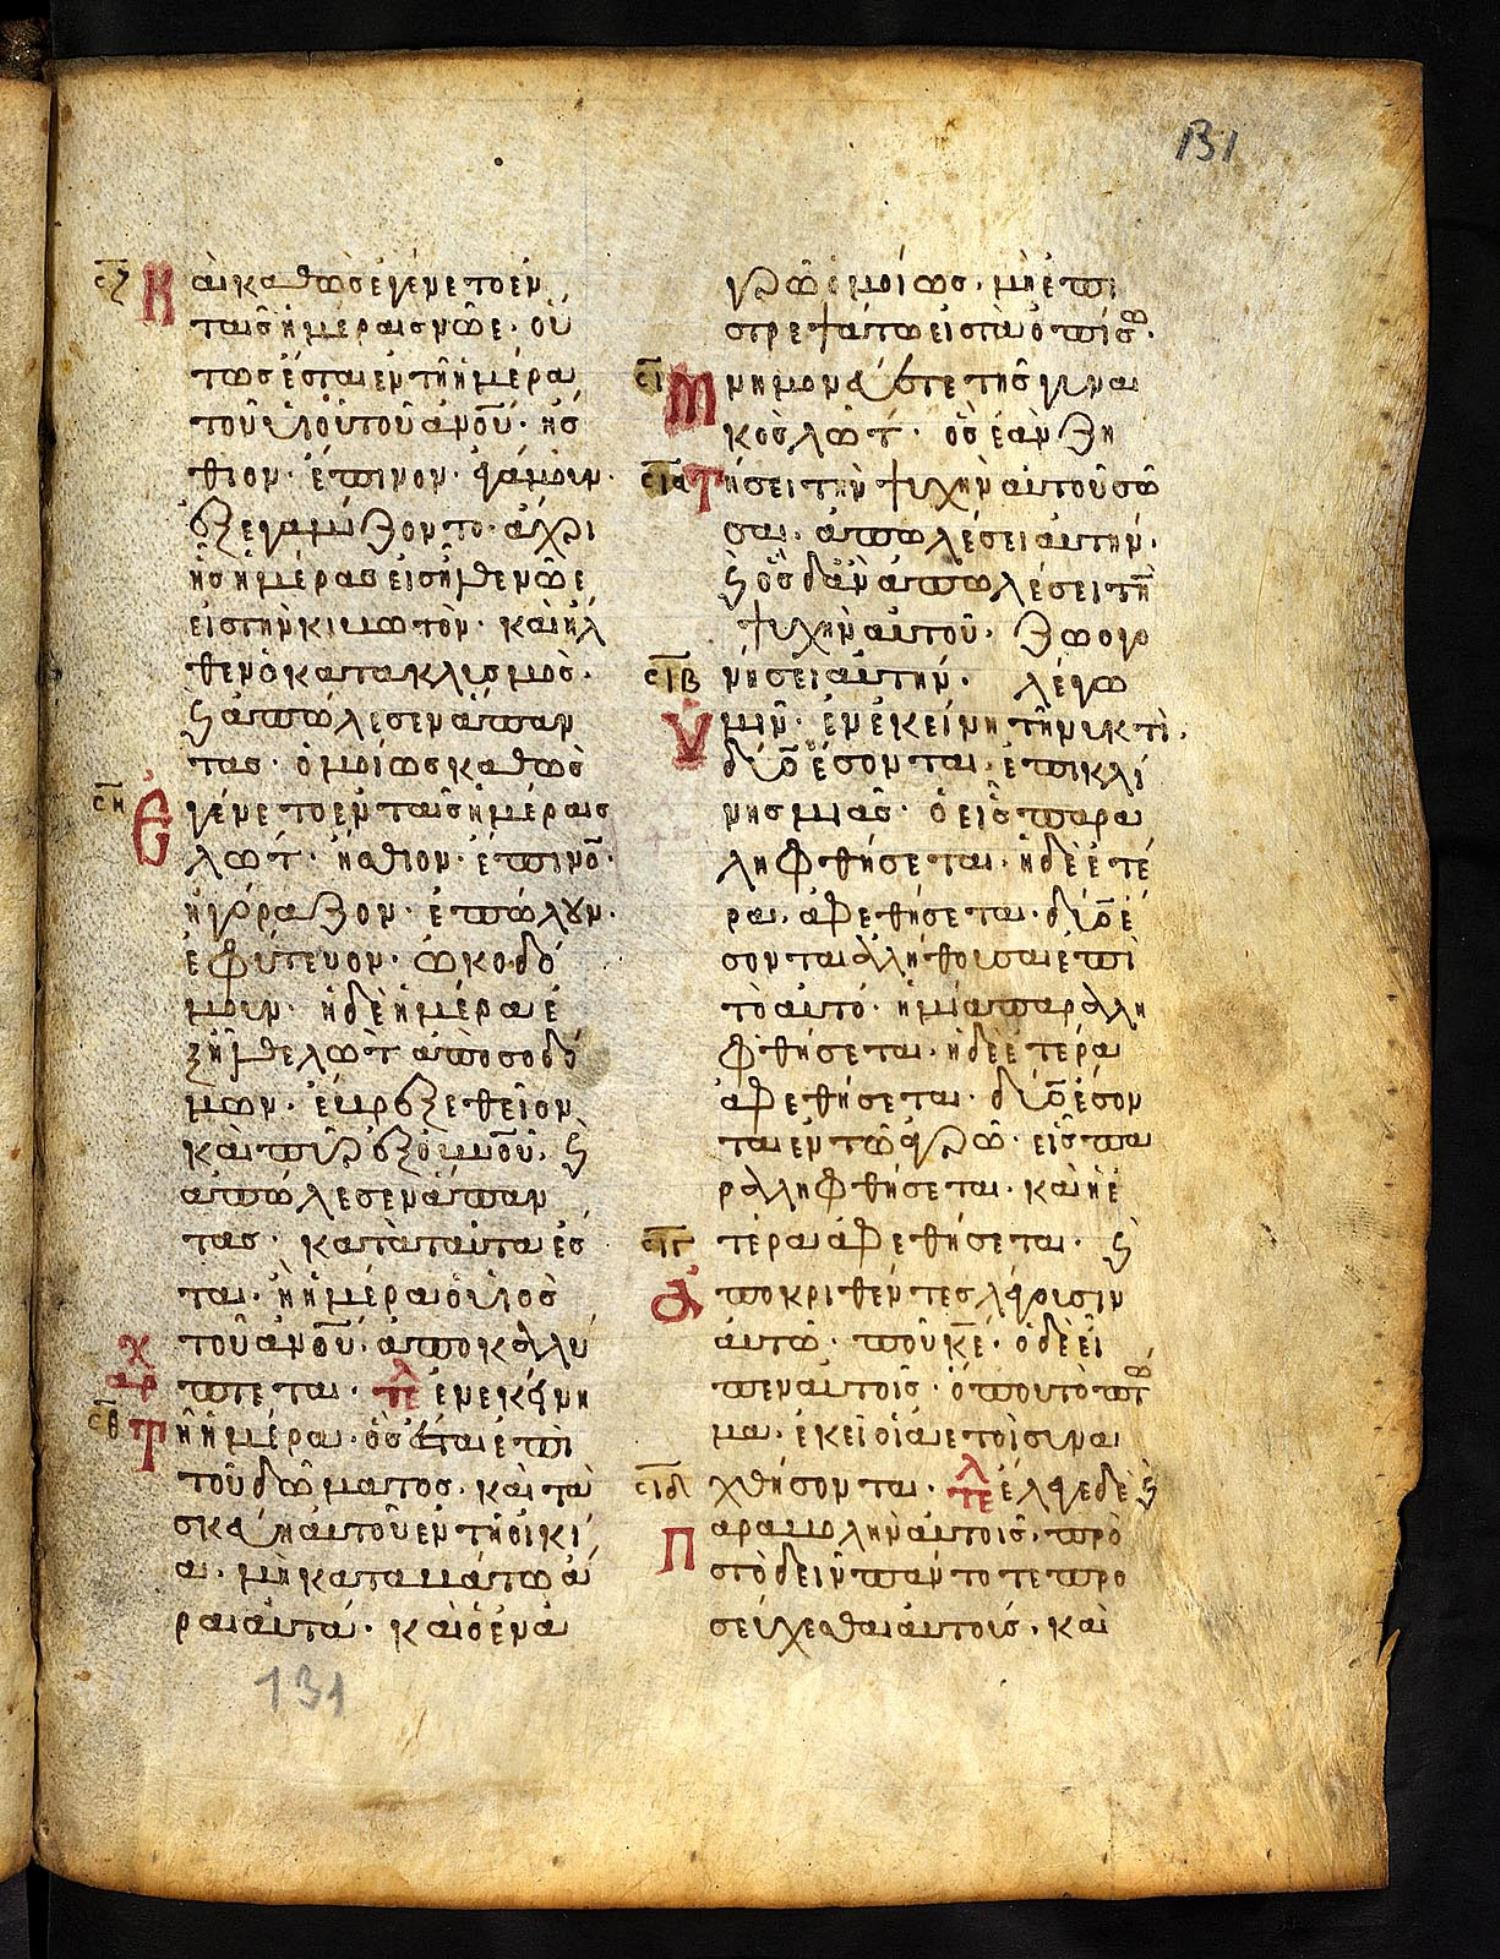 131
σζ Καὶ καθὼς ἐγένετο ἐν
ταῖς ἡμέραις νῶε· οὕ
τως ἔσται ἐν τῆ ἡμέρα
τοῦ υἱοῦ τοῦ ἀνου· ἤσ
θιον· ἔπινον· ἐγάμουν·
ἐξεγαμίζοντο· ἄχρι
ἧς ἡμέρας εἰσῆλθε νῶε
εἰς τὴν κιβωτόν· καὶ ἦλ
θεν ὁ κατακλυσμὸς·
ϗ ἀπώλεσεν ἅπαν
τας· ὁμοίως καθὼς
ση Ἐγένετο ἐν ταῖς ἡμέραις
λώτ· ἤσθιον· ἔπινον·
ἠγόραζον· ἐπώλουν·
ἐφύτευον· ὠκοδό
μουν· ἡ δὲ ἡμέρα ἐ
ξῆλθε λὼτ ἀπὸ σοδό
μων· ἔβρεξε θεῖον
καὶ πῦρ ἐξ οὐνου· ϗ
ἀπώλεσεν ἅπαν
τας· κατὰ ταῦτα ἔσ
ται· ἧ ἡμέρα ὁ υἱὸς
τοῦ ἀνου· ἀποκαλύ
πτεται· τελ ἐν ἐκείνη
αρχ
σθ Τῆ ἡμέρα· ὃς ἔσται ἐπὶ
τοῦ δώματος· καὶ τὰ
σκεύη αὐτοῦ ἐν τῆ οἰκί
α· μὴ καταβάτω ἆ
ραι αὐτά· καὶ ὁ ἐν ἀ
131
γρῶ ὁμοίως· μὴ ἐπι
στρεψάτω εἰς τὰ ὀπίσω·
σι Μνημονεύετε τῆς γυναι
κὸς λώτ· ὃς ἐὰν ζη
σια Τήσει τὴν ψυχὴν αὐτοῦ σῶ
σαι· ἀπωλέσει αὐτήν·
ϗ ὃς δἂν ἀπωλέσει τὴν
ψυχὴν αὐτοῦ· ζωογο
σιβ νήσει αὐτήν· λέγω
Ὑμῖν· ἐν ἐκείνη τῆ νυκτὶ·
δύο ἔσονται ἐπὶ κλί
νης μιᾶς· ὁ εἷς παρα
ληφθήσεται· ἡ δὲ ἑτέ
ρα· ἀφεθήσεται· δύο ἔ
σονται ἀλήθουσαι ἐπὶ
τὸ αὐτό· ἡ μία παραλη
φθήσεται· ἡ δὲ ἑτέρα
ἀφεθήσεται· δύο ἔσον
ται ἐν τῶ ἀγρῶ· εἷς πα
ραληφθήσεται· καὶ ἡ ἑ
σιγ τέρα ἀφεθήσεται· ϗ
Ἀποκριθέντες λέγουσιν
αὐτῶ· ποῦ κε· ὁ δὲ εἶ
πεν αὐτοῖς· ὅπου τὸ πτῶ
μα· ἐκεῖ οἱ ἀετοὶ συνα
σιδ χθήσονται· τελ ἔλεγε δὲ ϗ
Παραβολὴν αὐτοῖς· πρὸ
ς τὸ δεῖν πάντοτε προ
σεύχεσθαι αὐτούς· καὶ